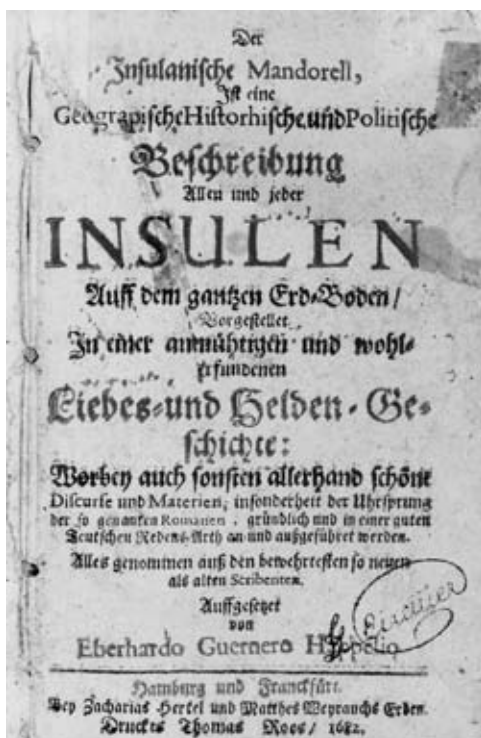 Der
Insulanische Mandorell,
Ist eine
Geograpische Historhische und Politische
Beschreibung
Allen und jeder
INSULEN
Auff dem gantzen Erd-Boden/
Vorgestellet
In einer anmühtigen und wohl-
erfundenen
Liebes-und Helden-Ge-
schichte:
Worbey auch sonsten allerhand schöne
Discurse und Materien, insonderheit der Uhrsprung
der so genanten Romanen, gründlich und in einer guten
Teutschen Redens-Arth an und außgeführet werden.
Alles genommen auß den bewehrtesten so neuen
als alten Scribenten.
Auffgesetzet
von
Eberhardo Guernero
Hamburg und Franckfürt.
Bey Zacharias Hertel und Matthes Weyrauchs Erben.
Druckts Thomas Roos/ 1682.